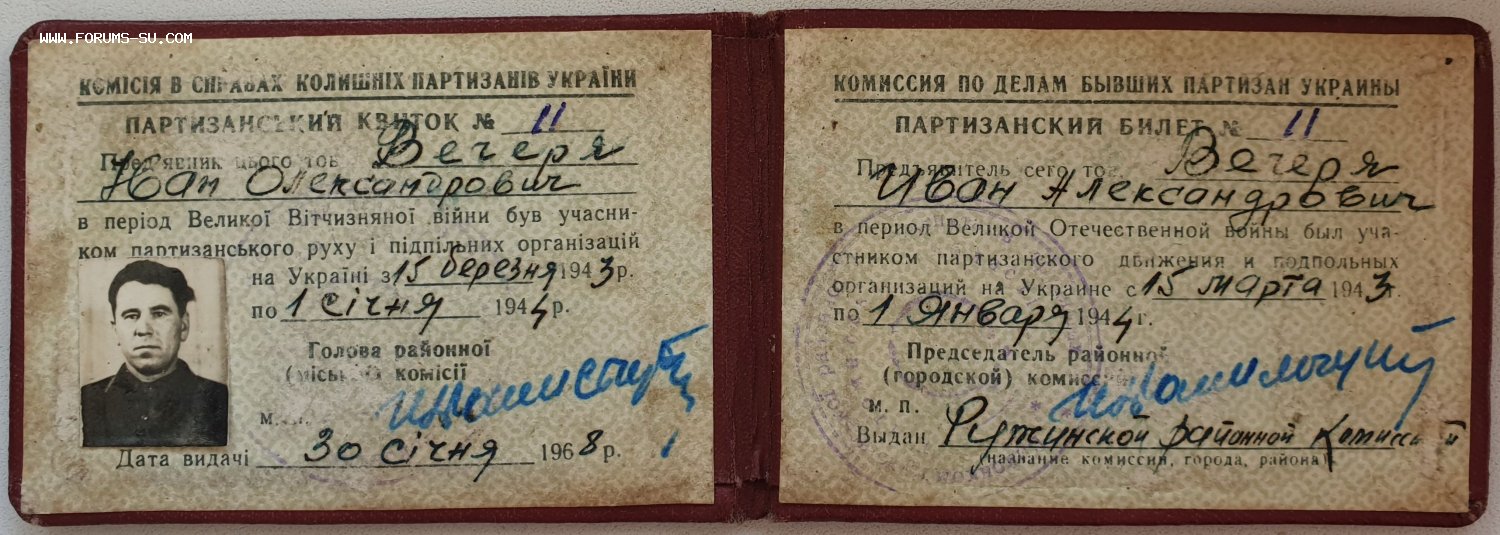 www.forums-su.com
КОМІСІЯ В СПРАВАХ КОЛИШНІХ ПАРТИЗАНІВ УКРАЇНИ
ПАРТИЗАНСЬКИЙ КВИТОК № 11
Пред'явник цього тов. Вечеря
Іван Олександрович
в період Великої Вітчизняної війни був учасни-
ком партизанського руху і підпільних організацій
на Україні з 15 березня 1943 р.
по 1 січня 1944 р.
Голова районної
(міської) комісії
М. П.
Дата видачі 30 січня 1968 р.
КОМИССИЯ ПО ДЕЛАМ БЫВШИХ ПАРТИЗАН УКРАИНЫ
ПАРТИЗАНСКИЙ БИЛЕТ № 11
Предъявитель сего тов. Вечеря
Иван Александрович
в период Великой Отечественной войны был уча-
стником партизанского движения и подпольных
организаций на Украине с 15 марта 1943 г.
по 1 Января 1944 г.
Председатель районной
(городской) комиссии
м. п.
Выдан Ружинской районной комиссией
(название комиссии, города, района)